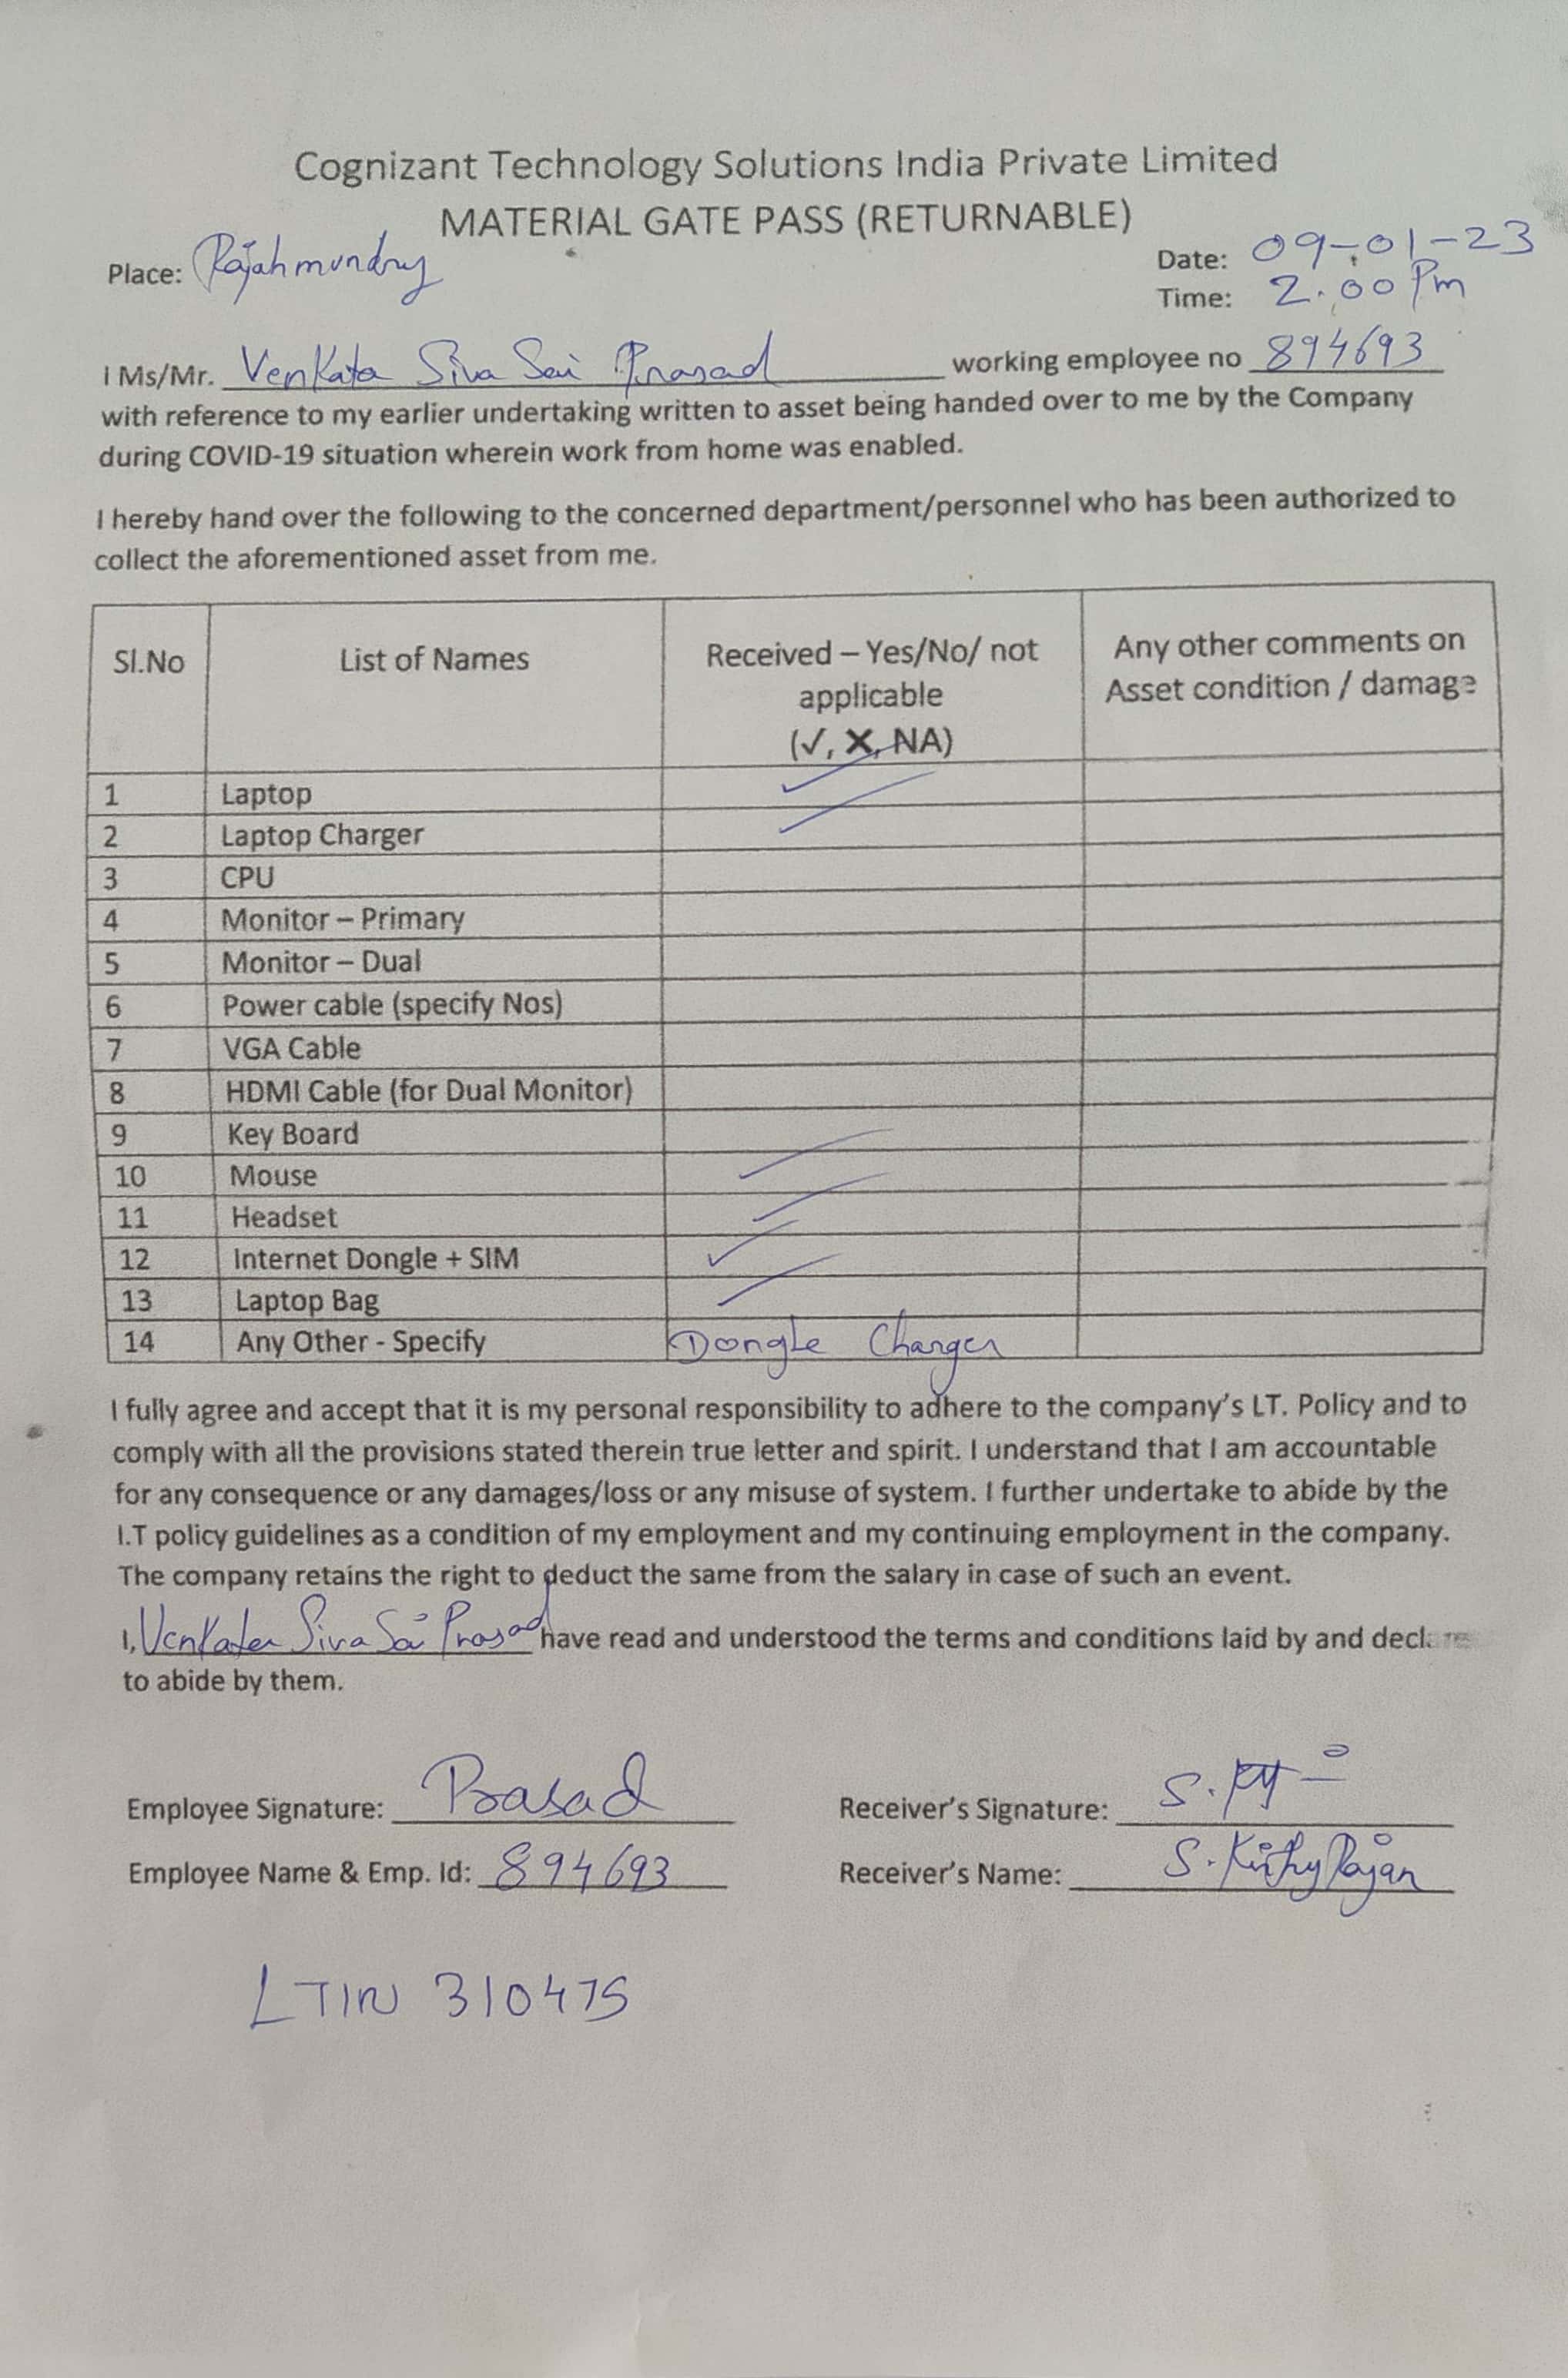 Cognizant Technology Solutions India Private Limited
MATERIAL GATE PASS (RETURNABLE)
Place: Rajahmundry
Date: 09-01-23
Time: 2.00 Pm
I Ms/Mr. Venkata Siva Sai Prasad working employee no 894693
with reference to my earlier undertaking written to asset being handed over to me by the Company
during COVID-19 situation wherein work from home was enabled.
I hereby hand over the following to the concerned department/personnel who has been authorized to
collect the aforementioned asset from me.
Sl.No List of Names Received – Yes/No/ not applicable (✓, ✗, NA) Any other comments on Asset condition / damage
1 Laptop ✓
2 Laptop Charger ✓
3 CPU
4 Monitor – Primary
5 Monitor – Dual
6 Power cable (specify Nos)
7 VGA Cable
8 HDMI Cable (for Dual Monitor)
9 Key Board
10 Mouse ✓
11 Headset ✓
12 Internet Dongle + SIM ✓
13 Laptop Bag ✓
14 Any Other - Specify Dongle Charger
I fully agree and accept that it is my personal responsibility to adhere to the company's I.T. Policy and to
comply with all the provisions stated therein true letter and spirit. I understand that I am accountable
for any consequence or any damages/loss or any misuse of system. I further undertake to abide by the
I.T policy guidelines as a condition of my employment and my continuing employment in the company.
The company retains the right to deduct the same from the salary in case of such an event.
I, Venkata Siva Sai Prasad have read and understood the terms and conditions laid by and declare
to abide by them.
Employee Signature: Prasad
Receiver's Signature: S.
Employee Name & Emp. Id: 894693
Receiver's Name: S.
LTIN 310475